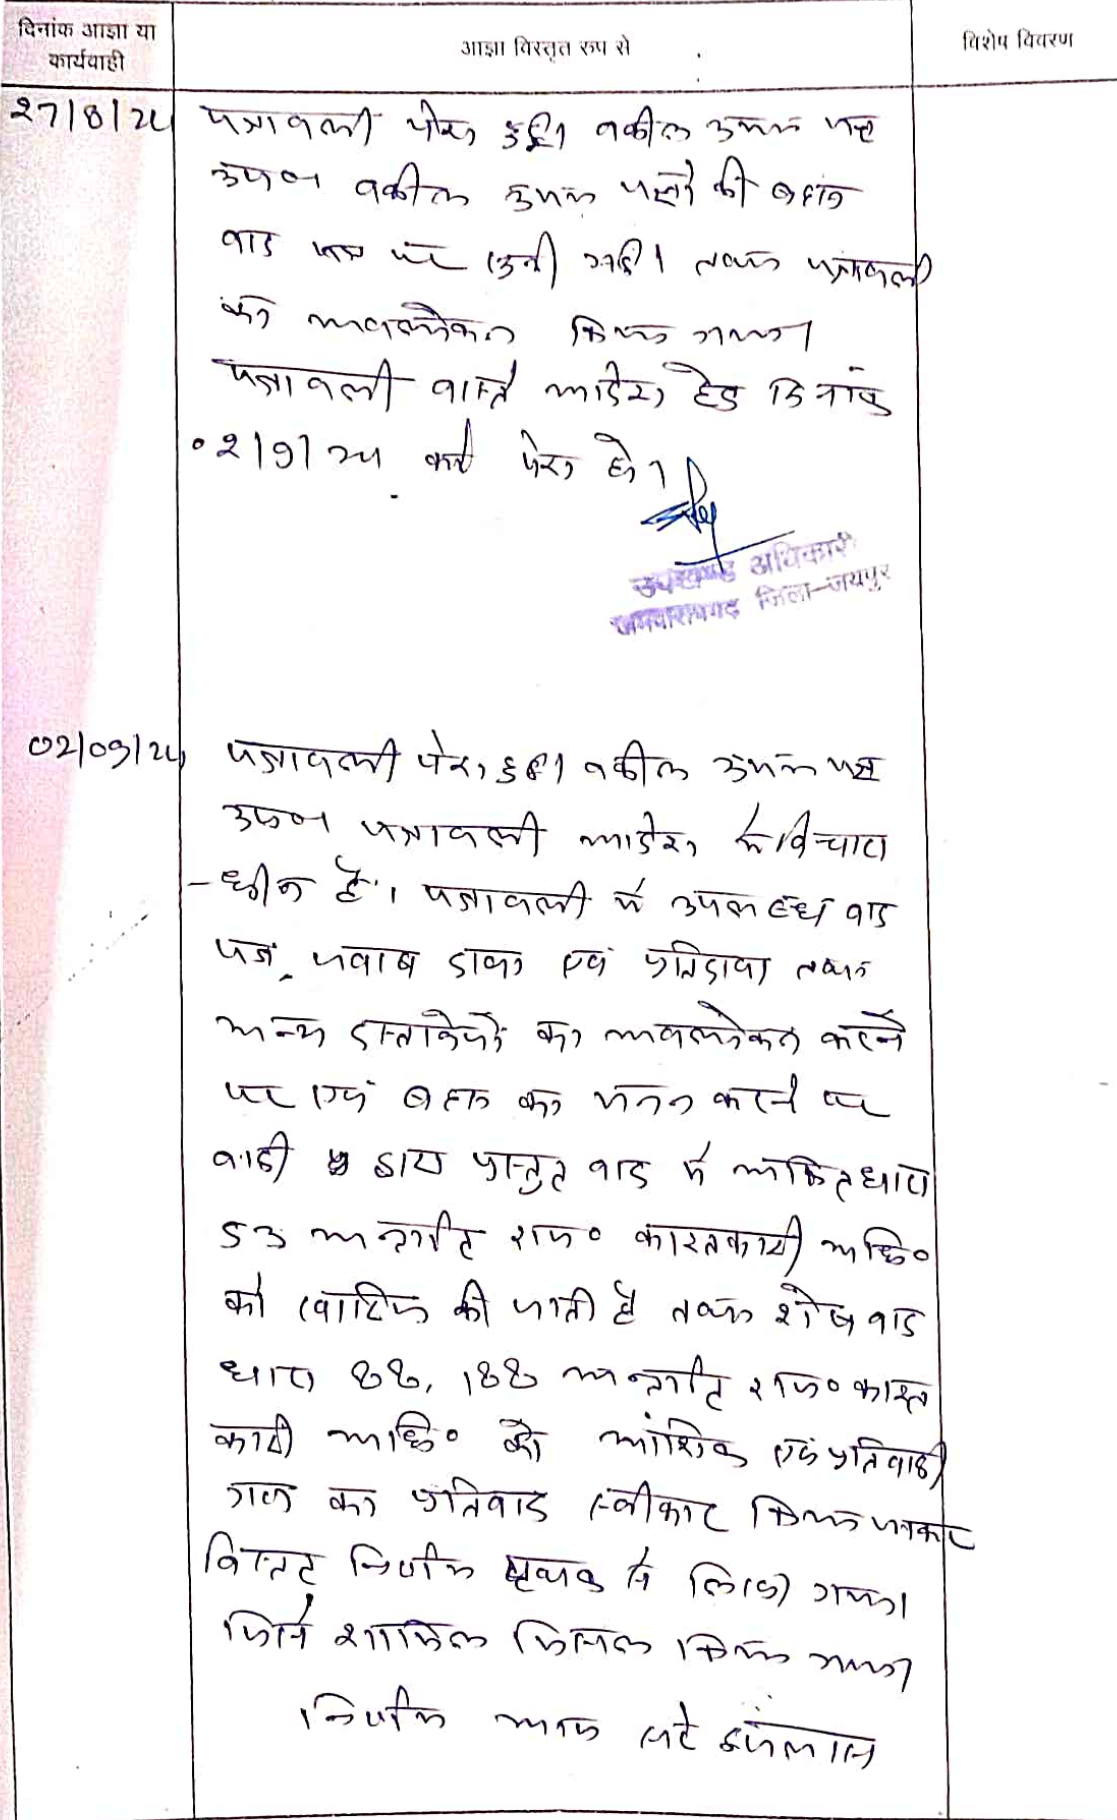 दिनांक आज्ञा या
कार्यवाही
आज्ञा विस्तृत रुप से
विशेष विवरण
27/8/24
पत्रावली पेश हुई। वकील उभय पक्ष
उप० वकील उभय पक्षो की बहस
वाद पत्र पर सुनी गई। तथा पत्रावली
का अवलोकन किया गया।
पत्रावली वास्ते आदेश हेतु दिनांक
02/9/24 को पेश हो।
उपखण्ड अधिकारी
जमवारामगढ़ जिला-जयपुर
02/09/24
पत्रावली पेश हुई। वकील उभय पक्ष
उप० पत्रावली आदेश में विचारा
-धीन है। पत्रावली में उपलब्ध वाद
पत्र, जवाब दावा एवं प्रतिदावा तथा
अन्य दस्तावेजों का अवलोकन करने
पर एवं बहस का मनन करने पर
वादी द्वारा प्रस्तुत वाद में अंकित धारा
53 अन्तर्गत राज० काश्तकारी अधि०
को खारिज की जाती है तथा शेष वाद
धारा 88, 188 अन्तर्गत राज० काश्त
कारी अधि० को आंशिक एवं प्रतिवादी
गण का प्रतिवाद स्वीकार किया जाकर
विस्तृत निर्णय पृथक से लिखा गया।
जिसे शामिल मिसल किया गया।
निर्णय आज सरे इजलास